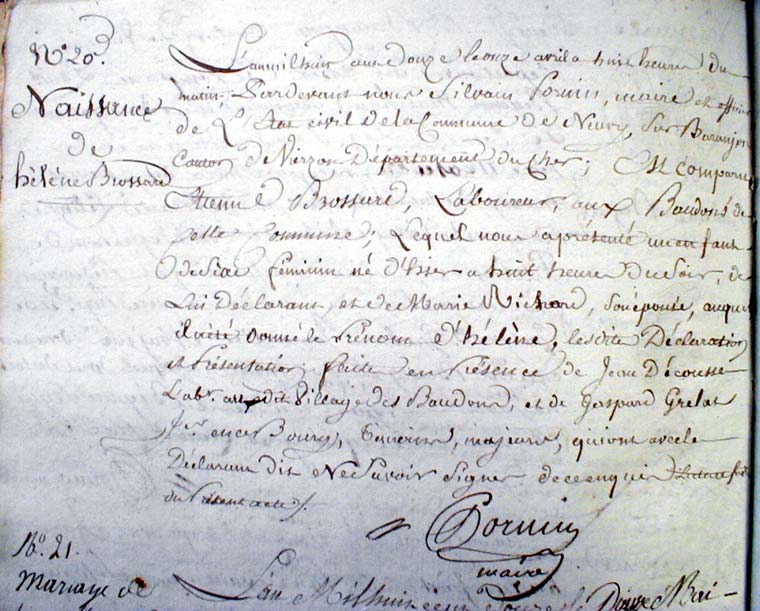 N.o 20.
Naissance
de
hélène Brossard
L'an mil huit cent Douze le onze avril a huit heures du
matin Pardevant nous Silvain Pornin, maire et officier
de L'Etat civil de la Commune de Neuvy, sur Baranjon
Canton de Vierzon Département du Cher; Est comparu
Etienne Brossard, Laboureur, aux Baudons de
cette Commune; Lequel nous a présenté un enfant
de sexe féminin né d'hier a huit heures du soir, de
Lui Déclarant et de Marie Richard, son épouse, auquel
il a été donné le Prénom d'hélène, les dite Déclaration
et Présentation, faite en Présence de Jean Décousse
Lab.r au dit Village des Baudons, et de Gaspard Grelat
J.er en ce Bourg, témoins, majeurs, qui ont avec le
Déclarant dit ne Savoir Signer de ce enquis Lecture faite
du Présent acte /.
Pornin
maire
N.o 21.
Mariage de
L'an Mil huit cent Douze le Douze Mai